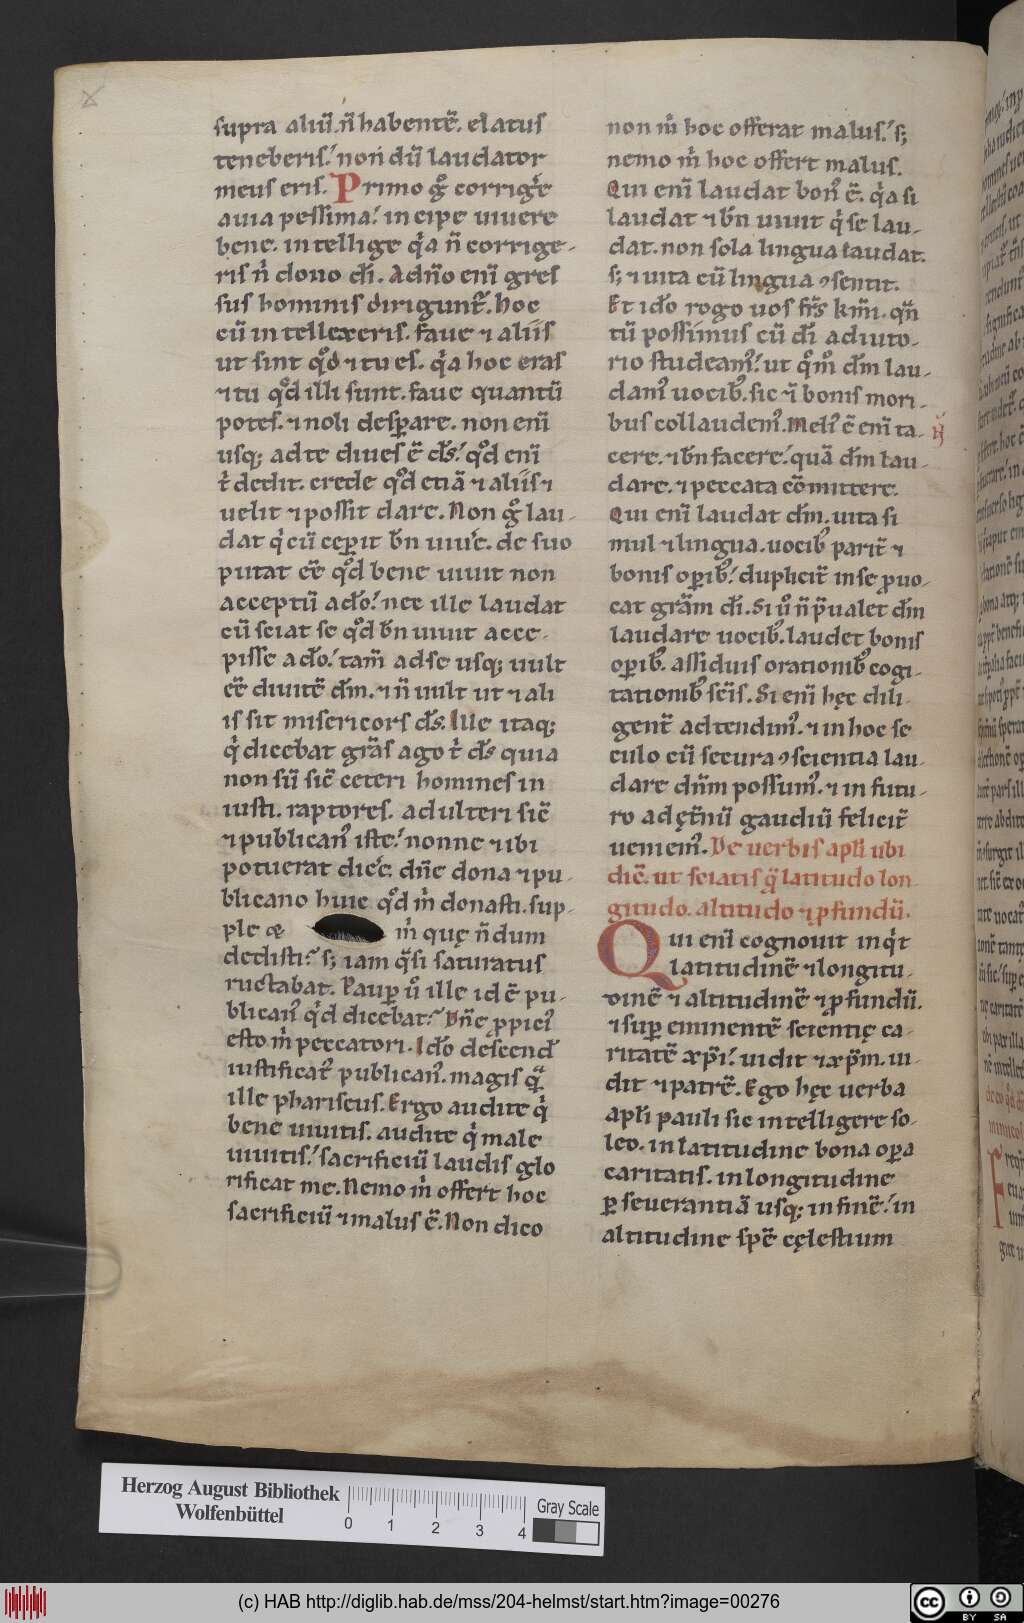 supra aliū. n̄ habentē. elatus
teneberis. non dū laudator
meus eris. Primo g̊ corrig̃e
auia pessima. incipe uiuere
bene. intellige q̇a n̄ corrige-
ris n̓ dono dī. Adn̄o enī gres
sus hominis dirigunt̃. hoc
cū intellexeris. faue ⁊ aliis
ut sint q̊d ⁊ tu es. q̇a hoc eras
⁊ tu q̊d illi sunt. faue quantū
potes. ⁊ noli desꝑare. non enī
usq; ad te diues ē ds̄. q̊d enī
t̓ dedit. crede q̊d etiā ⁊ aliis ⁊
uelit ⁊ possit dare. Non g̊ lau-
dat q̇ cū ceꝑit bn̄ uiuẽ. de suo
putat eē q̊d bene uiuit non
acceptū a dō. nec ille laudat
cū sciat se q̊d bn̄ uiuit acce-
pisse a dō. tam̄ ad se usq; uult
eē diuitē dm̄. ⁊ n̄ uult ut ⁊ ali
is sit misericors ds̄. Ille itaq;
q̇ diceb̄at gr̄as ago t̓ ds̄ quia
non sū sic̄ ceteri homines in
iusti. raptores. adulteri sic̄
⁊ publican᷒ iste. nonne ⁊ ibi
potuerat dic̄e. dn̄e dona ⁊ pu-
blicano huic q̊d m̓ donasti. sup-
ple æ m̓ quę n̄dum
dedisti. s; iam q̄si saturatus
ructabat. Pauꝑ ů ille id ē pu-
blican᷒ q̇d diceb̄at. Dn̄e ꝓpici᷒
esto m̓ peccatori. Idō descend̄
iustificat᷒ publican᷒. magis q̄
ille phariseus. Ergo audite q̇
bene uiuitis. audite q̇ male
uiuitis. sacrificiū laudis glo
rificat me. Nemo m̓ offert hoc
sacrificiū ⁊ malus ē. Non dico
non m̓ hoc offerat malus. s;
nemo m̓ hoc offert malus.
Qui enī laudat bon᷒ ē. q̇a si
laudat ⁊ bn̄ uiuit q̇ se lau-
dat. non sola lingua laudat.
s; ⁊ uita cū lingua ꝯsentit.
Et idō rogo uos fr̄s km̄i. qn̄
tū possimus cū dī adiuto-
rio studeam᷒. ut q̊m᷒ dm̄ lau-
dam᷒ uocib᷒. sic ⁊ ī bonis mori-
bus collaudem᷒. Meli᷒ ē enī ta-
cere. ⁊ bn̄ facere. quā dm̄ lau-
dare. ⁊ peccata cōmittere.
Qui enī laudat dm̄. uita si
mul ⁊ lingua. uocib᷒ parit̃ ⁊
bonis oꝑib᷒. duplicit̃ in se ꝓuo-
cat gr̄am dī. Si ů n̄ p̄ualet dm̄
laudare uocib᷒. laudet bonis
oꝑib᷒. assiduis orationib᷒ cogi-
tationib᷒ sc̄is. Si enī hęc dili-
gent̃ adtendim᷒. ⁊ in hoc se
culo cū secura ꝯscientia lau-
dare dn̄m possum᷒. ⁊ in futu-
ro ad ęt̃nū gaudiū felicit̃
ueniem᷒. De uerbis apl̄i ubi
dic̄. ut sciatis q̄ latitudo lon-
gitudo. altitudo ⁊ ꝓfundū.
Qui enī cognouit inq̇t
latitudinē ⁊ longitu-
dinē ⁊ altitudinē ⁊ ꝓfundū.
⁊ suꝑ eminentē scientię ca-
ritatē xp̄i. uidit ⁊ xp̄m. ui-
dit ⁊ patrē. Ego hęc uerba
apl̄i pauli sic intelligere so-
leo. in latitudine bona oꝑa
caritatis. in longitudine
ꝑseuerantiā usq; in finē. in
altitudine spē cęlestium
Herzog August Bibliothek
Wolfenbüttel
0 1 2 3 4
Gray Scale
(c) HAB http://diglib.hab.de/mss/204-helmst/start.htm?image=00276
cc BY SA